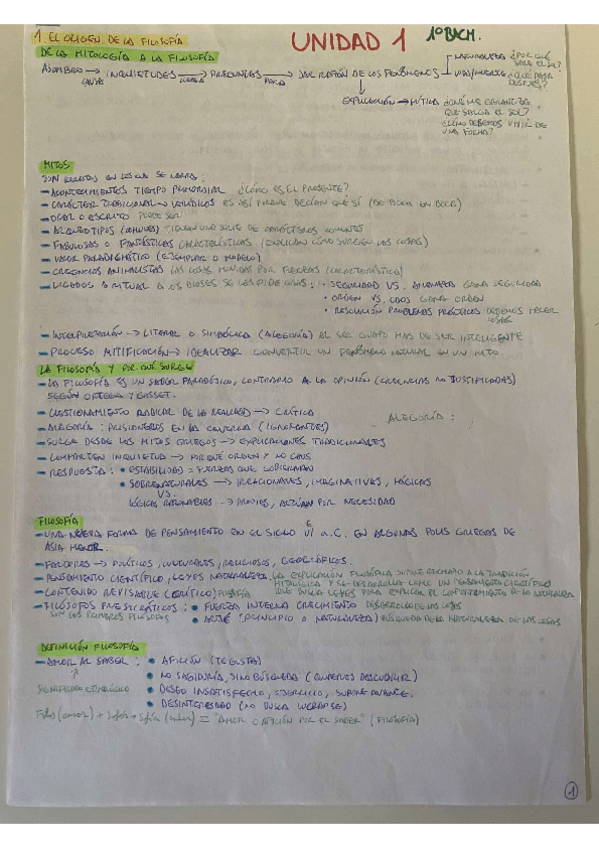 1. EL ORIGEN DE LA FILOSOFÍA
UNIDAD 1 1º BACH.
DE LA MITOLOGÍA A LA FILOSOFÍA
ASOMBRO → INQUIETUDES → PREGUNTAS → DAR RAZÓN DE LOS FENÓMENOS
CAUSA PARA
NATURALEZA ¿POR QUÉ SALE EL SOL?
VIDA/MUERTE ¿QUÉ PASA DESPUÉS?
EXPLICACIÓN → MÍTICA ¿QUÉ ME GARANTIZA
QUE SALGA EL SOL?
¿CÓMO DEBEMOS VIVIR DE
UNA FORMA?
MITOS
SON RELATOS EN LOS QUE SE NARRA:
- ACONTECIMIENTOS TIEMPO PRIMORDIAL ¿CÓMO ES EL PRESENTE?
- CARÁCTER TRADICIONAL → VERÍDICOS ES ASÍ PORQUE DECÍAN QUE SÍ (DE BOCA EN BOCA)
- ORAL O ESCRITO PUEDE SER
- ARQUETIPOS (COMUNES) TIENEN UNA SERIE DE CARACTERES COMUNES
- FABULOSAS O FANTÁSTICAS CARACTERÍSTICAS (EXPLICAN CÓMO SURGEN LAS COSAS)
- VALOR PARADIGMÁTICO (EJEMPLAR O MODELO)
- CREENCIAS ANIMISTAS LAS COSAS MOVIDAS POR FUERZAS (CARACTERÍSTICO)
- LIGADOS A RITUAL A LOS DIOSES SE LES PIDE COSAS: • SEGURIDAD VS. AMENAZA GANA SEGURIDAD
• ORDEN VS. CAOS GANA ORDEN
• RESOLUCIÓN PROBLEMAS PRÁCTICOS DEBEMOS HACER COSAS
- INTERPRETACIÓN → LITERAL O SIMBÓLICA (ALEGORÍA) AL SER HUMANO MÁS DE SER INTELIGENTE
- PROCESO MITIFICACIÓN → IDEALIZAR CONVERTIR UN FENÓMENO NATURAL EN UN MITO
LA FILOSOFÍA Y POR QUÉ SURGE
- LA FILOSOFÍA ES UN SABER PARADÓJICO, CONTRARIO A LA OPINIÓN (CREENCIAS NO JUSTIFICADAS)
SEGÚN ORTEGA Y GASSET.
- CUESTIONAMIENTO RADICAL DE LA REALIDAD → CRÍTICA
ALEGORÍA:
- ALEGORÍA: PRISIONEROS EN LA CAVERNA (IGNORANTES)
- SURGE DESDE LOS MITOS GRIEGOS → EXPLICACIONES TRADICIONALES
- COMPARTEN INQUIETUD → POR QUÉ ORDEN Y NO CAOS
- RESPUESTA: • ESTABILIDAD = FUERZAS QUE GOBIERNAN
• SOBRENATURALES → IRRACIONALES, IMAGINATIVAS, MÁGICAS
VS.
LÓGICAS RAZONABLES → PROPIOS, ACTÚAN POR NECESIDAD
FILOSOFÍA
- UNA NUEVA FORMA DE PENSAMIENTO EN EL SIGLO VI a.C. EN ALGUNAS POLIS GRIEGAS DE
ASIA MENOR.
- FACTORES → POLÍTICOS, CULTURALES, RELIGIOSOS, GEOGRÁFICOS.
- PENSAMIENTO CIENTÍFICO, LEYES NATURALEZA, LA EXPLICACIÓN FILOSÓFICA SUPONE RECHAZO A LA TRADICIÓN
MITOLÓGICA Y SE DESARROLLA COMO UN PENSAMIENTO CIENTÍFICO
- CONTENIDO REVISABLE (CRÍTICO) FILOSOFÍA QUE BUSCA LEYES PARA EXPLICAR EL COMPORTAMIENTO DE LA NATURALEZA
- FILÓSOFOS PRESOCRÁTICOS: • FUERZA INTERNA CRECIMIENTO DESARROLLO DE LAS COSAS
SON LOS PRIMEROS FILÓSOFOS • ARJÉ "PRINCIPIO O NATURALEZA" BÚSQUEDA DE LA NATURALEZA DE LAS COSAS
DEFINICIÓN FILOSOFÍA
- AMOR AL SABER: • AFICIÓN (TE GUSTA)
• NO SABIDURÍA, SINO BÚSQUEDA (QUEREMOS DESCUBRIR)
SIGNIFICADO ETIMOLÓGICO • DESEO INSATISFECHO, EJERCICIO, SUPONE AVANCE.
• DESINTERESADO (NO BUSCA LUCRARSE)
Filos (amor) + Sofos → Sofía (saber) = "AMOR O AFICIÓN POR EL SABER" (FILOSOFÍA)
1